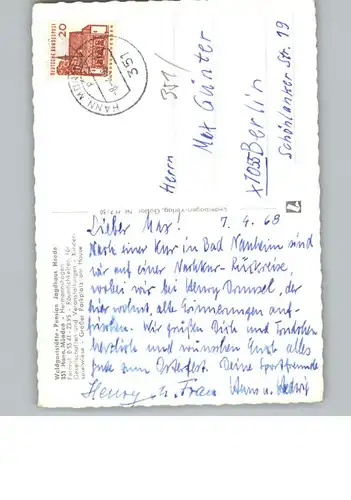 DEUTSCHE BUNDESPOST
20
HANN
351
351/
Herrn
Max Günter
x1055 Berlin
Schönlanker Str. 19
Waldgaststätte - Pension Jagdhaus Heede
351 Hann. Münden - Hermannshagen
Gesellschaften und Veranstaltungen - Kinder-
spielwiese - Großer Parkplatz am Hause
Lieber Max! 7. 4. 68
Nach einer Kur in Bad Nauheim sind
wir auf einer Nachkur-Rückreise,
wobei wir bei Henry Dunsel, der
hier wohnt, alte Erinnerungen auf-
frischen. Wir grüßen Dich und
herzlich und wünschen Euch alles
gute zum Osterfest. Deine Sportfreunde
Henry u. Frau Hans u. Hedwig